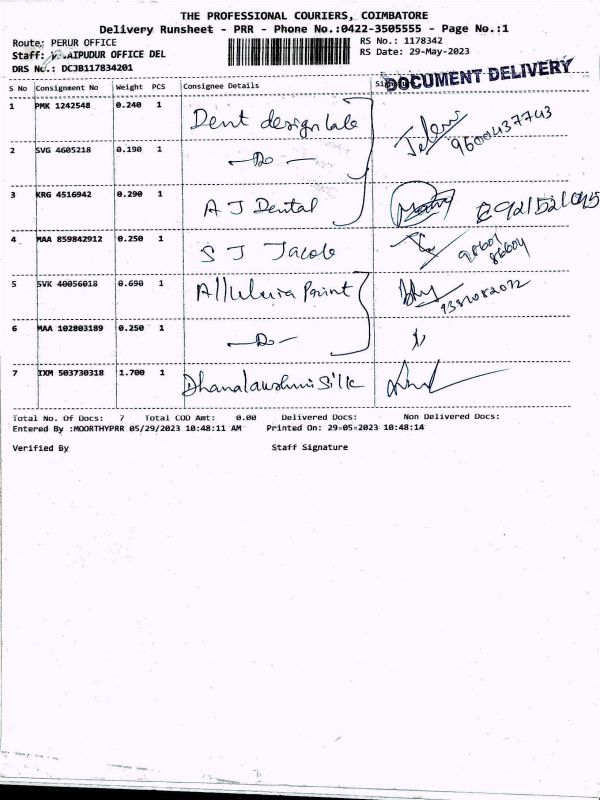 THE PROFESSIONAL COURIERS, COIMBATORE
Delivery Runsheet - PRR - Phone No.:0422-3505555 - Page No.:1
Route: PERUR OFFICE
RS No.: 1178342
Staff: OFFICE DEL
RS Date: 29-May-2023
DRS No.: DCJB117834201
DOCUMENT DELIVERY
S No Consignment No Weight PCS Consignee Details
1 PMK 1242548 0.240 1 Dent design lab 9600437743
2 SVG 4605218 0.190 1 —Do—
3 KRG 4516942 0.290 1 A J Dental
4 MAA 859842912 0.250 1 S J Jacob
5 SVK 40056018 0.690 1 Alleluia Print
6 MAA 102803189 0.250 1 —Do—
7 IXM 503730318 1.700 1 Dhanalakshmi Silk
Total No. Of Docs: 7 Total COD Amt: 0.00 Delivered Docs: Non Delivered Docs:
Entered By :MOORTHYPRR 05/29/2023 10:48:11 AM Printed On: 29-05-2023 10:48:14
Verified By Staff Signature